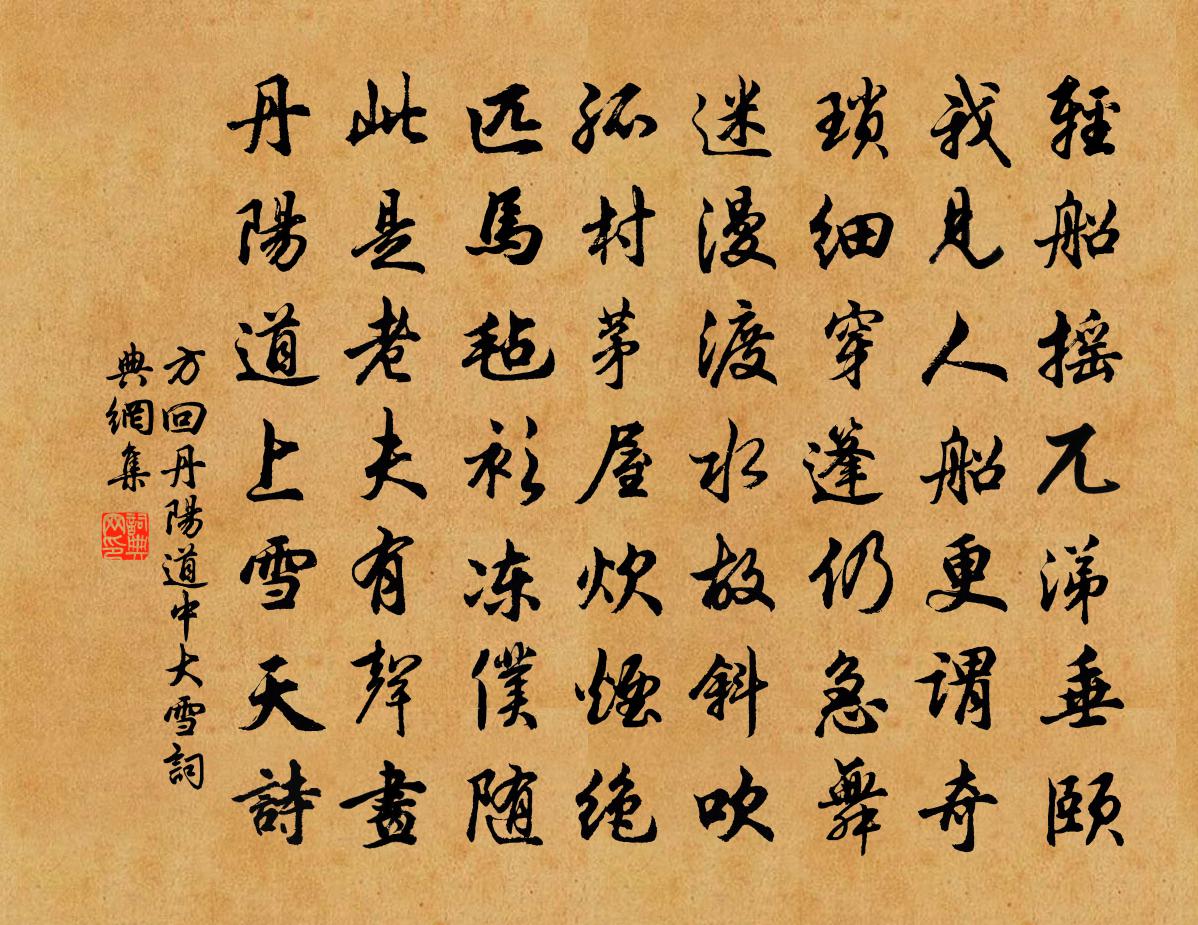 輕船摇兀涕垂頤
我見人船更謂奇
瑣細穿蓬仍急舞
迷漫渡水故斜吹
孤村茅屋炊煙绝
匹馬毡衫冻僕随
此是老夫有聲畫
丹陽道上雪天詩
方回丹陽道中大雪詞
典網集
詞典网印